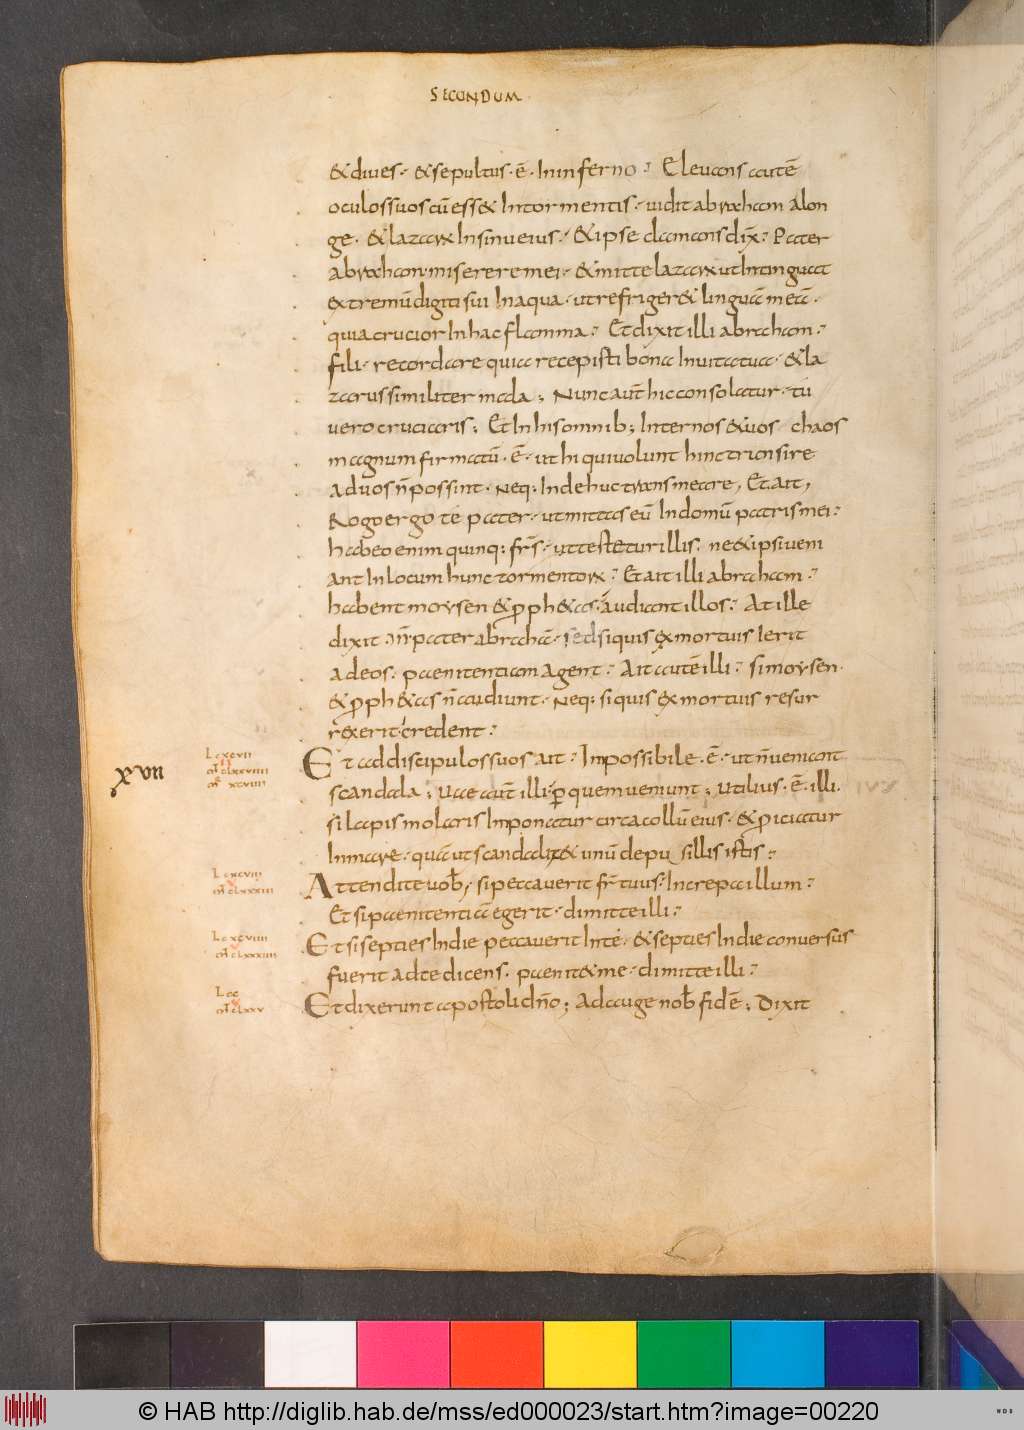 SECUNDUM
& diues· & sepultus· ē· In inferno· Eleuans autē
oculos suos cū ess& In tormentis· uidit abraham Alon
ge· & lazarū In sinu eius· & ipse clamans dix̄· Pater
abraham miserere mei· & mitte lazarū ut Intinguat
extremū digiti sui In aqua· ut refriger& linguā meā·
quia crucior In hac flamma· Et dixit illi abraham·
fili· recordare quia recepisti bona In uita tua· & la
zarus similiter mala; Nunc aut̄ hic consolatur· tu
uero cruciaris; Et In his omnib; Inter nos & uos chaos
magnum firmatū· ē· ut hi qui uolunt hinc transire
ad uos n̄ possint· Neq: Inde huc transmeare, Et ait,
Rogo ergo te pater· ut mittas eū In domū patris mei·
habeo enim quinq: fr̄s· ut testetur illis· ne & ipsi ueni
ant In locum hunc tormentorū· Et ait illi abraham·
habent moysen & proph&as· Audiant illos· At ille
dixit· n̄ pater abrahā· sed si quis ex mortuis Ierit
ad eos· paenitentiam Agent· Ait autē illi· si moysen·
& proph&as n̄ audiunt· Neq: si quis ex mortuis resur
rexerit credent·
XVII
L cxcvii
Et ad discipulos suos ait· Impossibile· ē· ut n̄ ueniant
scandala; Uae aut̄ illi· p̄ quem ueniunt; Utilius· ē· illi·
si lapis molaris Imponatur circa collū eius· & proiciatur
In mare· quā ut scandaliz& unū de pusillis istis·
L cxcviii
m̄t clxxxiii
Attendite uob̄, si peccauerit fr̄ tuus· Increpa illum·
Et si paenitentiā egerit· dimitte illi·
L cxcviiii
m̄t clxxxiiii
Et si septies In die peccauerit In te· & septies In die conuersus
fuerit ad te dicens· paenit& me· dimitte illi·
L cc
m̄t clxxv
Et dixerunt apostoli dn̄o; Adauge nob̄ fidē; Dixit
© HAB http://diglib.hab.de/mss/ed000023/start.htm?image=00220